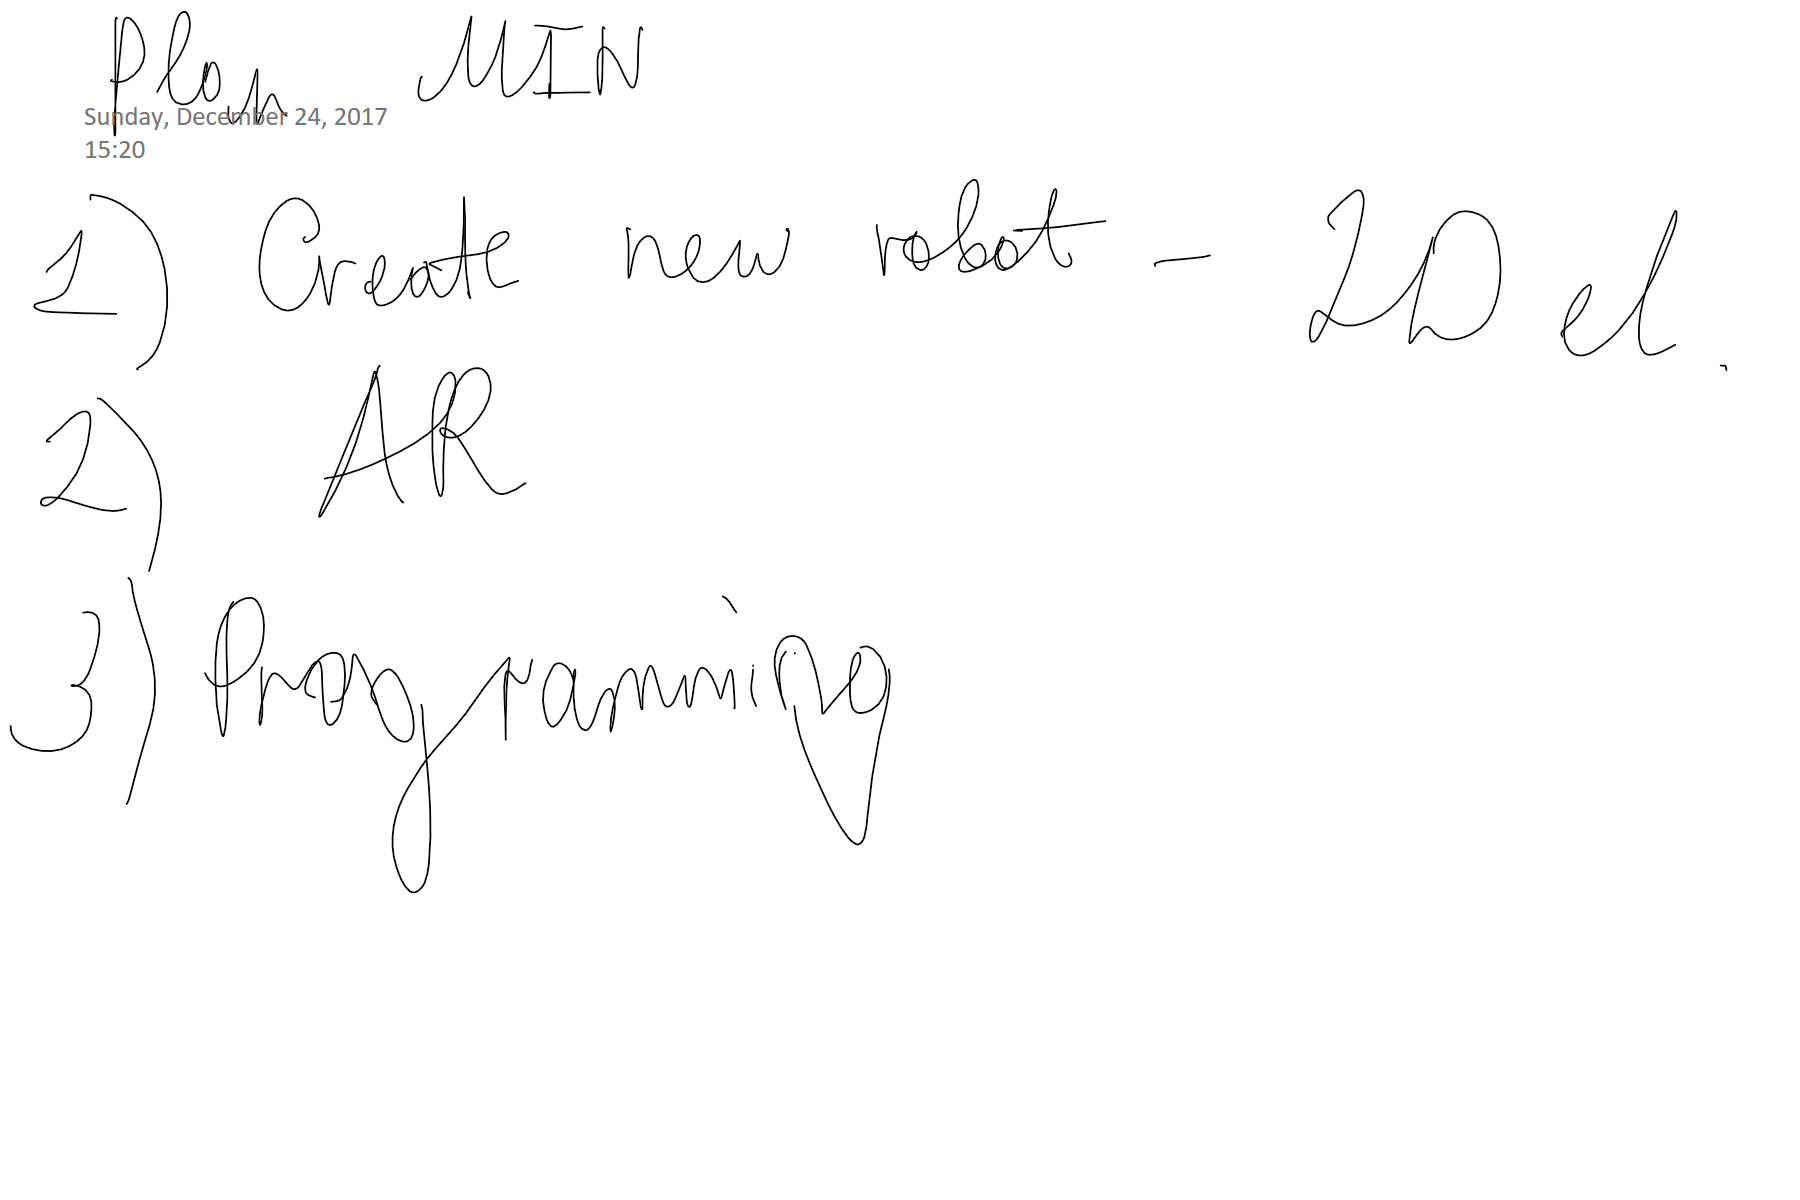 Plan MIN
Sunday, December 24, 2017
15:20
1) Create new robot - 2D el.
2) AR
3) Programming